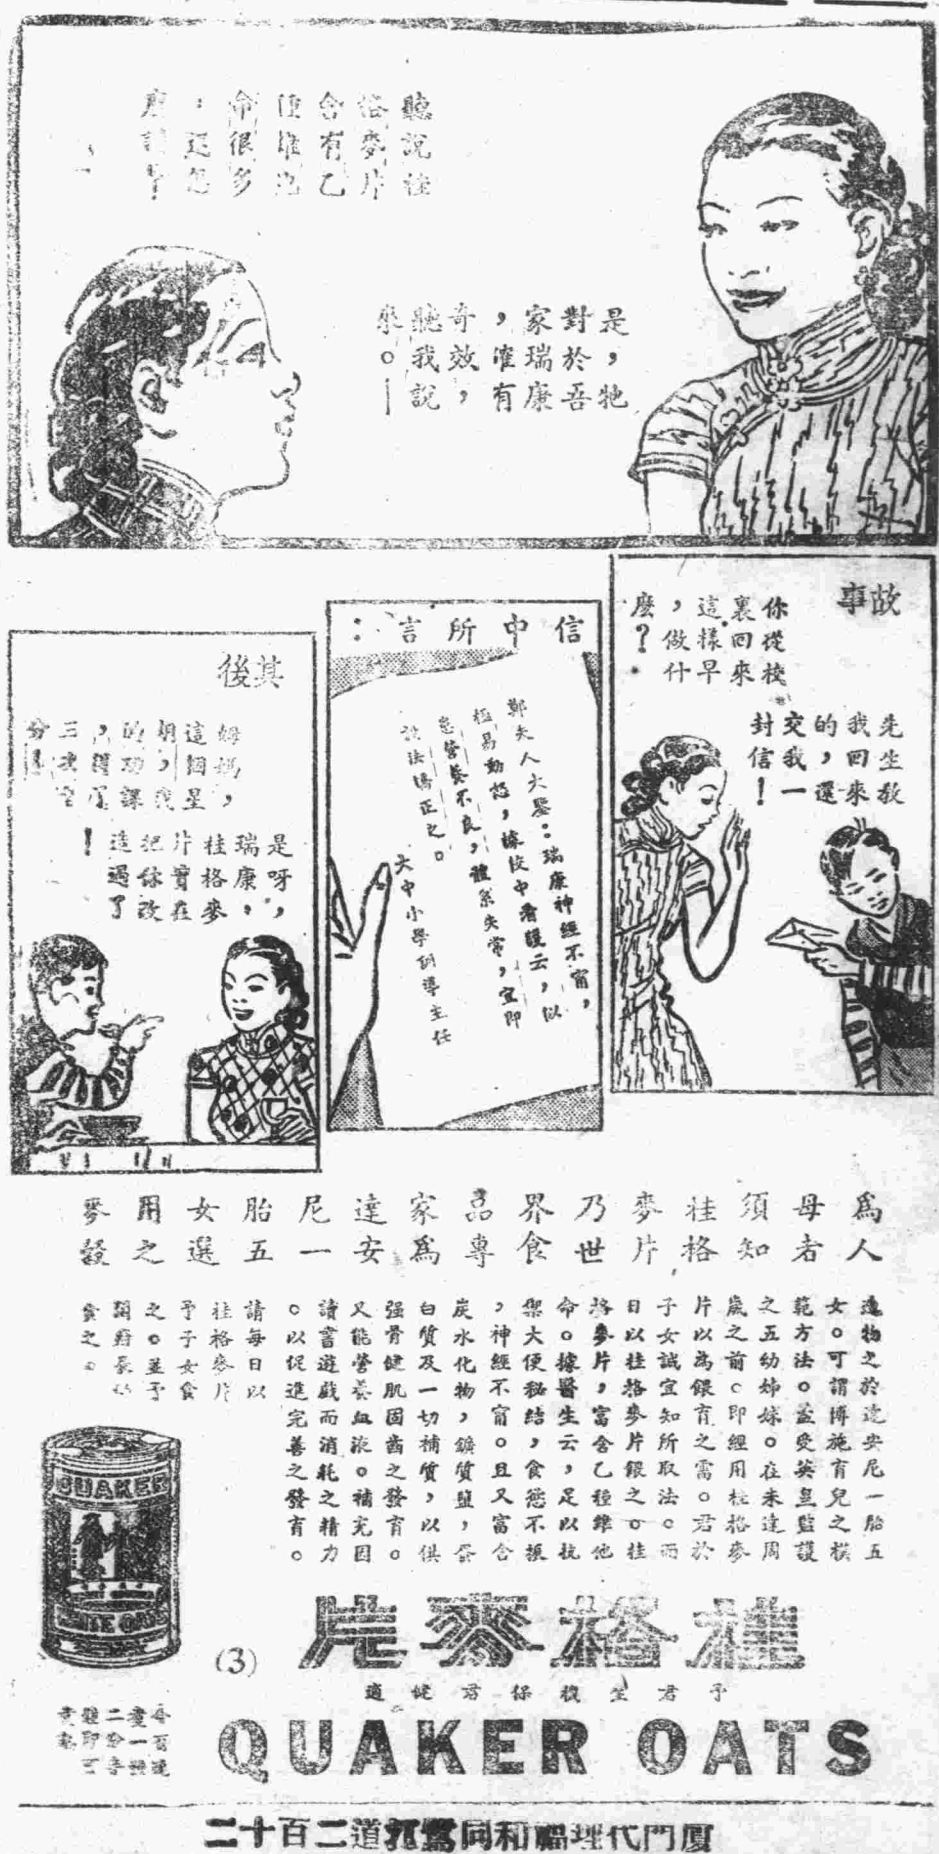 聽說桂
格麥片
含有乙
種維他
命很多
，這怎
麽講？
是，牠
對於吾
家瑞康
，確有
奇效，
聽我說
來。
故事
你從校
裏回來
這樣早
，做什
麽？
先生教
我回來
的，還
交我一
封信！
信中所言：
鄭夫人大鑒：瑞康神經不甯，
極易動怒，據校中看護云，似
係營養不良，體系失常，宜即
設法矯正之。
大中小學訓導主任
其後
姆媽，
這個星
期，我
的功課
，得了
三次全
分！
是呀，
瑞康，
桂格麥
片實在
把你改
造過了
！
為人
母者
須知
桂格
麥片
乃世
界食
品專
家為
達安
尼一
胎五
女選
用之
麥穀
達安尼一胎五
女。可謂博施育兒之模
範方法。蓋受英皇監護
之五幼姊妹。在未達周
歲之前。即經用桂格麥
片以為餵育之需。君於
子女誠宜知所取法。而
日以桂格麥片餵之。桂
格麥片，富含乙種維他
命。據醫生云，足以抗
禦大便秘結，食慾不振
，神經不甯。且又富含
炭水化物，鑛質鹽，蛋
白質及一切補質，以供
强骨健肌固齒之發育。
又能營養血液。補充因
讀書遊戲而消耗之精力
。以促進完善之發育。
請每日以
桂格麥片
予子女食
之。並予
食之。
QUAKER
WHITE OATS
(3)
桂格麥片
QUAKER OATS
廈門代理福和同鷺江道二百十二